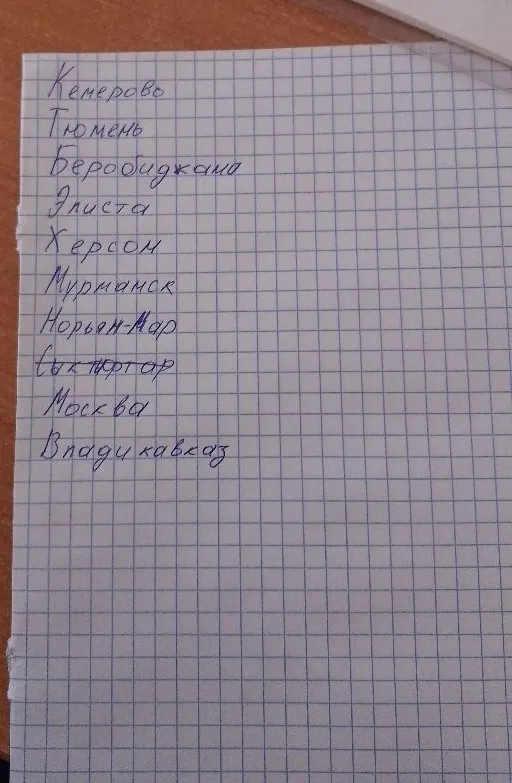 Кемерово
Тюмень
Беробиджана
Элиста
Херсон
Мурманск
Норьян-Мар
Москва
Владикавказ